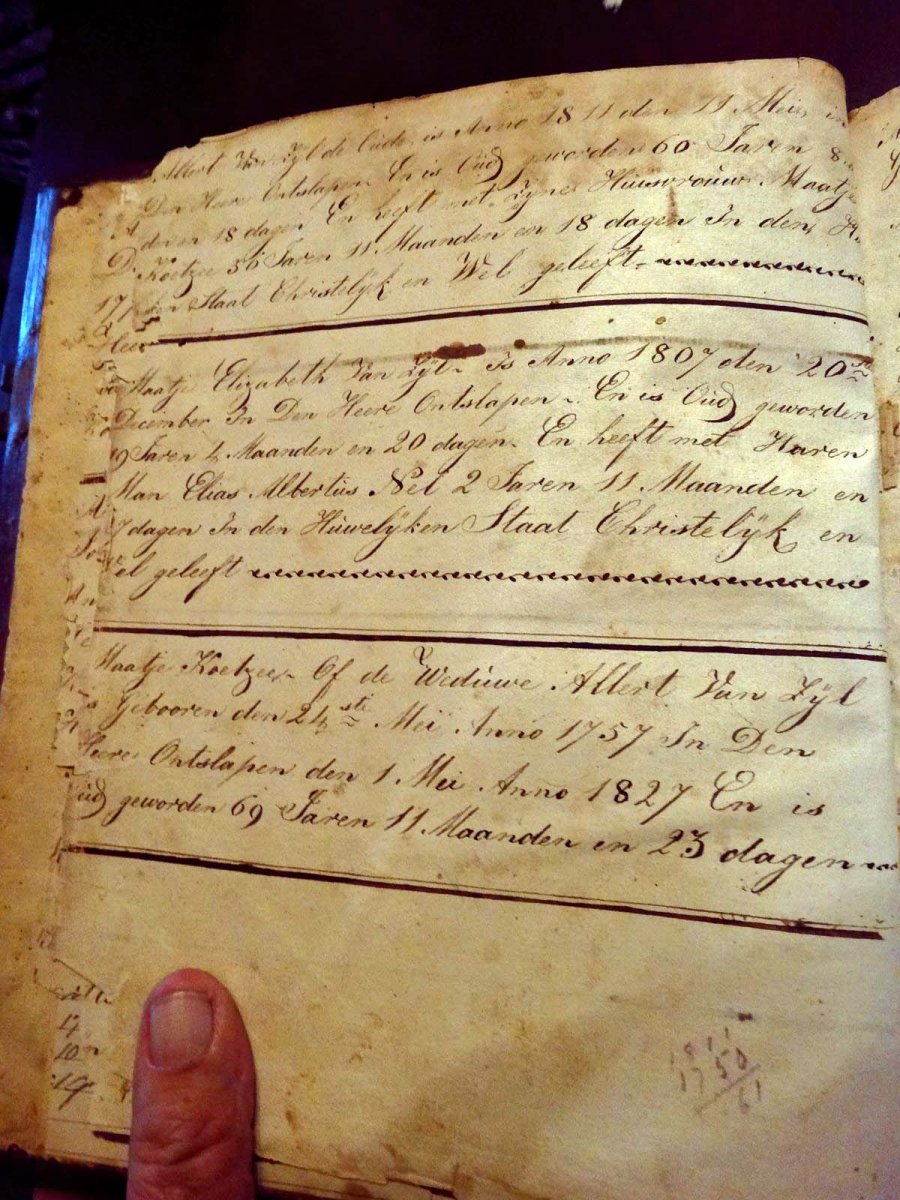 Albert Van Zyl de Oude is Anno 1811 den 11 Meis in
Den Heere Ontslapen En is Oud geworden 60 Jaren 8
den en 18 dagen En heeft met Zyne Huwsvrouw Maatje
Koetzee 36 Jaren 11 Maanden en 18 dagen In den
Staat Christelÿk en Wel geleeft
Maatje Elizabeth Van Zÿl Is Anno 1807 den 20ste
December In Den Heere Ontslapen En is Oud geworden
19 Jaren 4 Maanden en 20 dagen En heeft met Haren
Man Elias Albertus Nel 2 Jaren 11 Maanden en
7 dagen In den Huwelÿken Staat Christelÿk en
el geleeft
Maatje Koetzee Of de Weduwe Albert Van Zÿl
Gebooren den 24ste Meÿ Anno 1757 In Den
Heere Ontslapen den 1 Mei Anno 1827 En is
ud geworden 69 Jaren 11 Maanden en 23 dagen
D
177
Heer
4
10
19
1811
1750
61